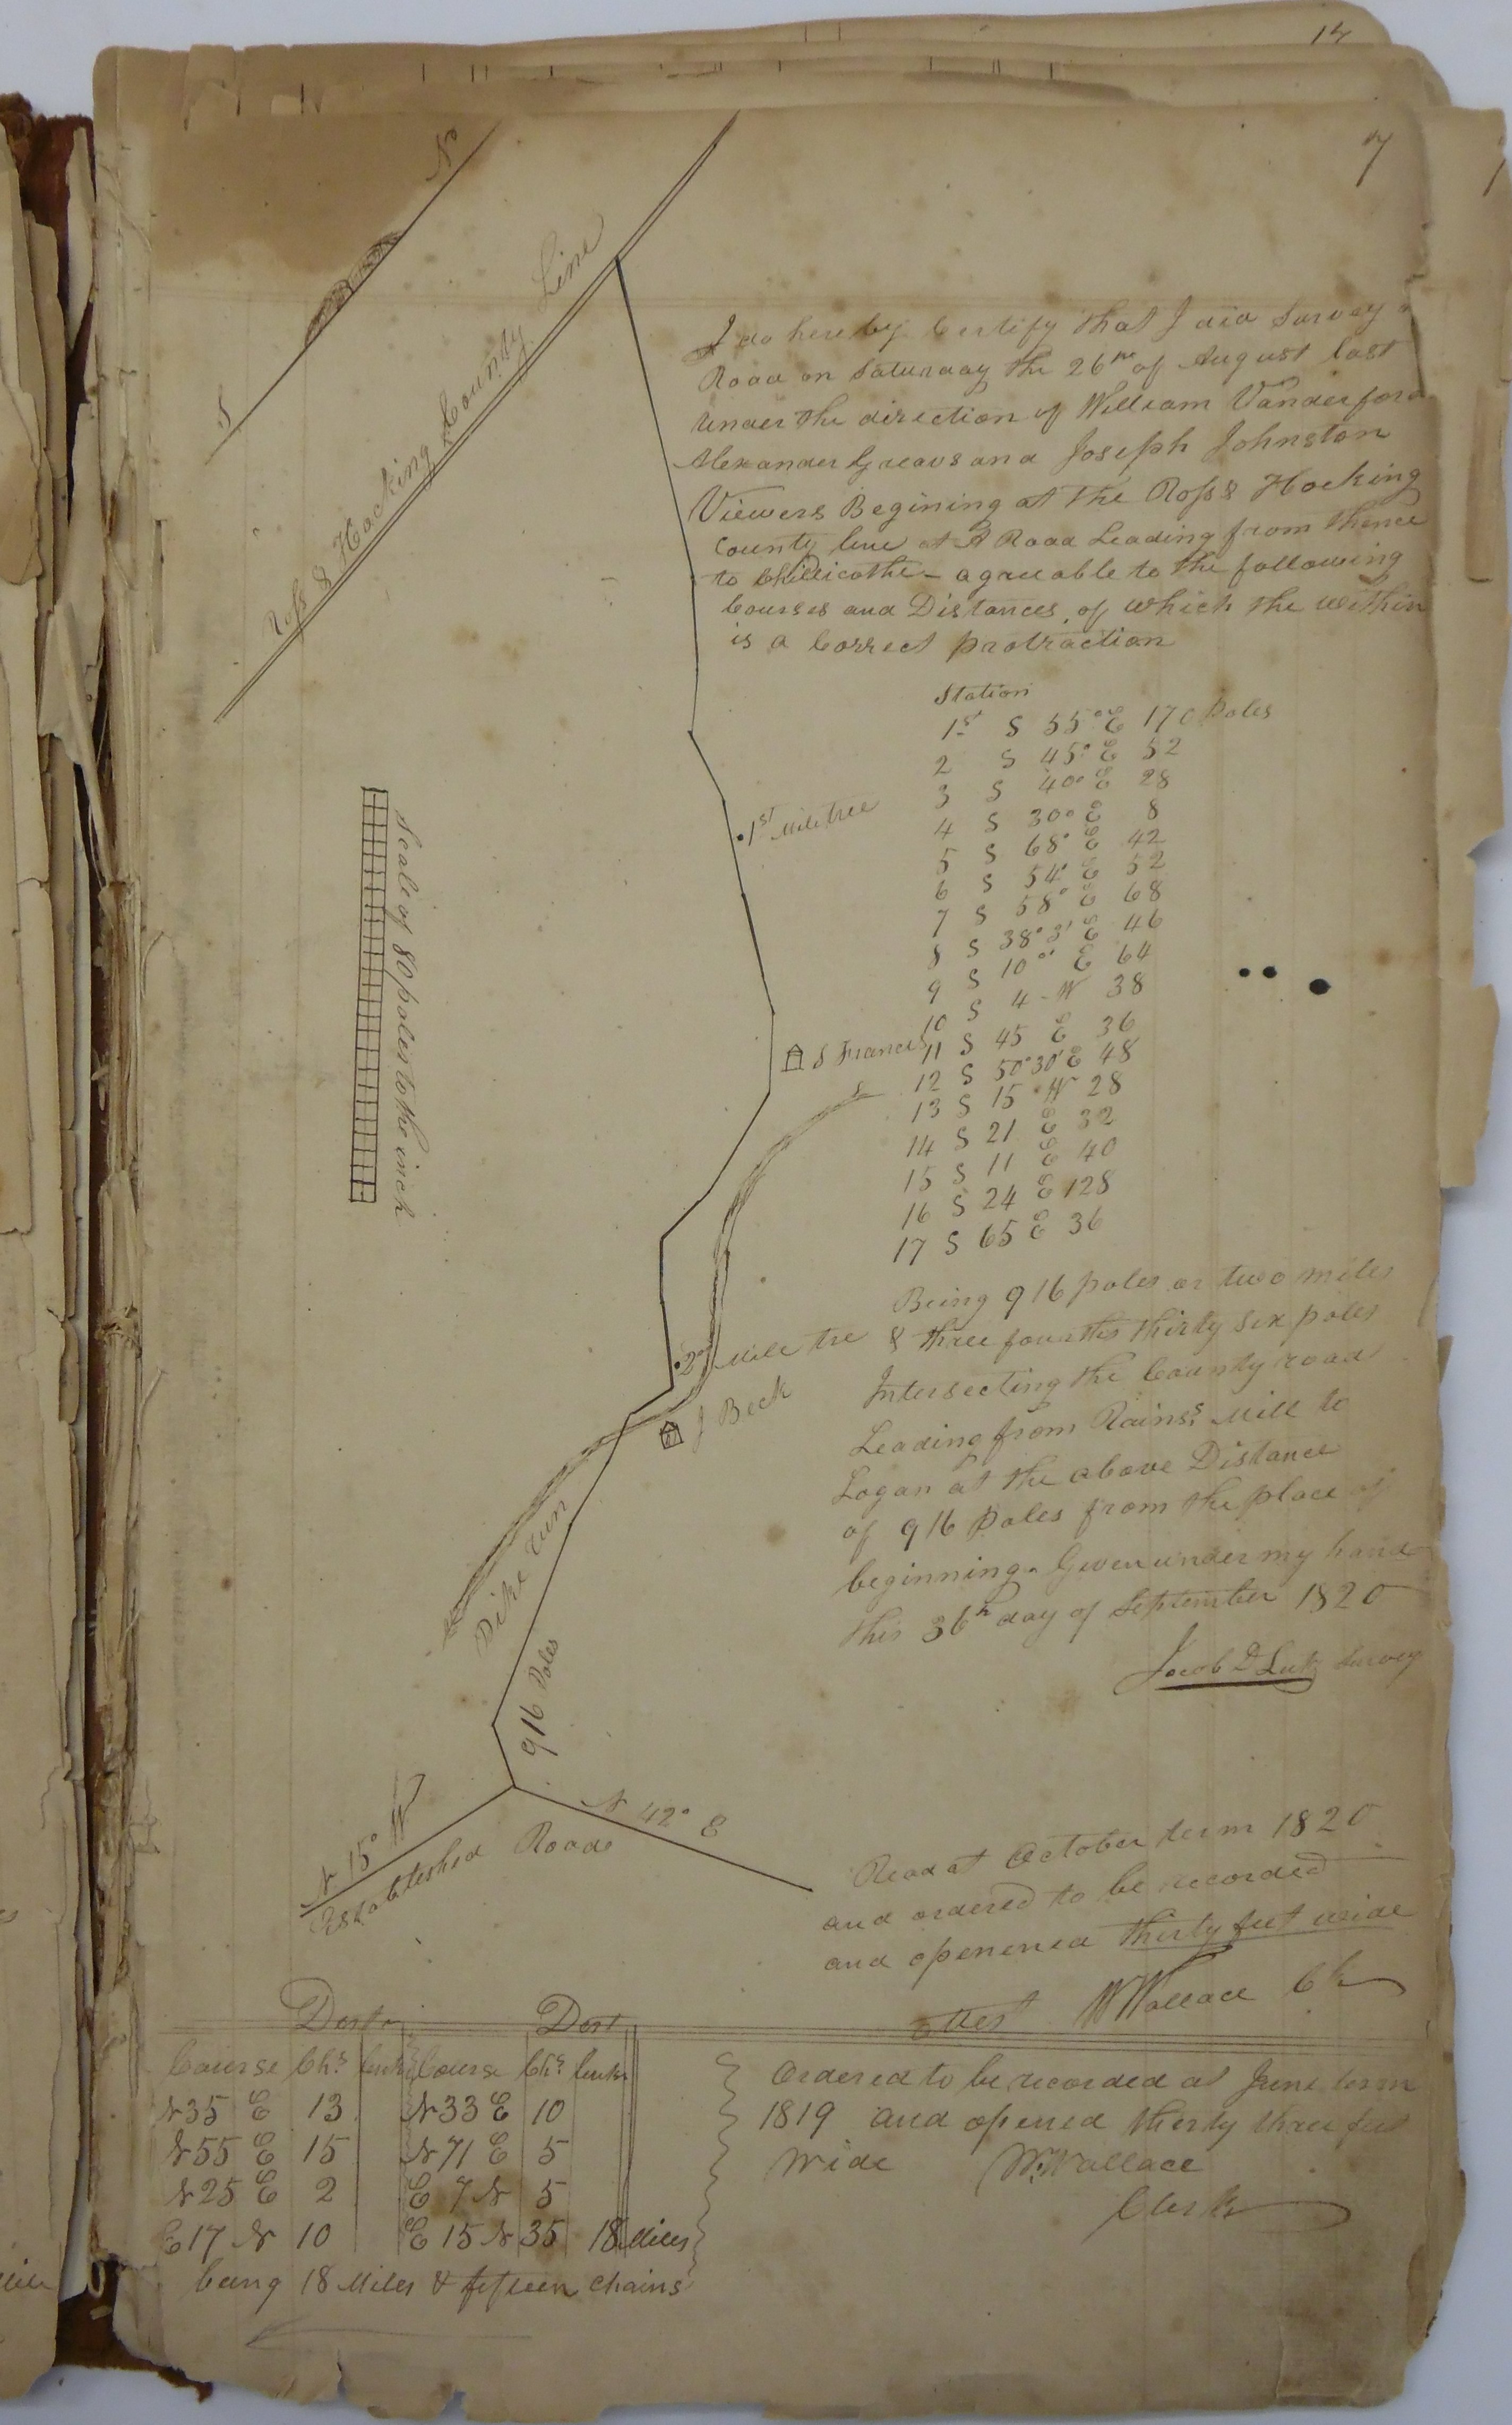 14
7
No
S
Ross & Hocking County Line
I do hereby Certify that I did Survey a
Road on Saturday the 26th of August last
under the direction of William Vanderford
Alexander Greaves and Joseph Johnston
Viewers Begining at the Ross & Hocking
County line at A Road Leading from thence
to Chillicothe - agreeable to the following
Courses and Distances, of which the within
is a Correct protraction
Station
1st S 55° E 170 Poles
2 S 45° E 52
3 S 40° E 28
4 S 30° E 8
5 S 68° E 42
6 S 54° E 52
7 S 58° E 68
8 S 38° 3' E 46
9 S 10° E 64
10 S 4 - W 38
11 S 45 E 36
12 S 50° 30' E 48
13 S 15 ° W 28
14 S 21 E 32
15 S 11 E 40
16 S 24 E 128
17 S 65 E 36
1st Mile tree
Scale of 80 poles to the inch
S Francis
2d Mile tre
J Beck
Pike run
916 Poles
N 15° W
N 42° E
Established Road
Being 916 poles or two miles
& three fourths thirty six poles
Intersecting the County road
Leading from Rains's Mill to
Logan at the above Distance
of 916 Poles from the place of
beginning. Given under my hand
this 36th day of September 1820
Jacob D Lutz Survey
Read at October term 1820
and ordered to be recorded
and openened thirty feet wide
attest W Wallace Clk
Dist Dist
Course Chs links Course Chs links
N 35 E 13 N 33 E 10
N 55 E 15 N 71 E 5
N 25 E 2 E 7 N 5
E 17 N 10 E 15 N 35 18 Miles
being 18 Miles & fifteen chains
Ordered to be recorded at June term
1819 and opened thirty three feet
wide W. Wallace
Clerk